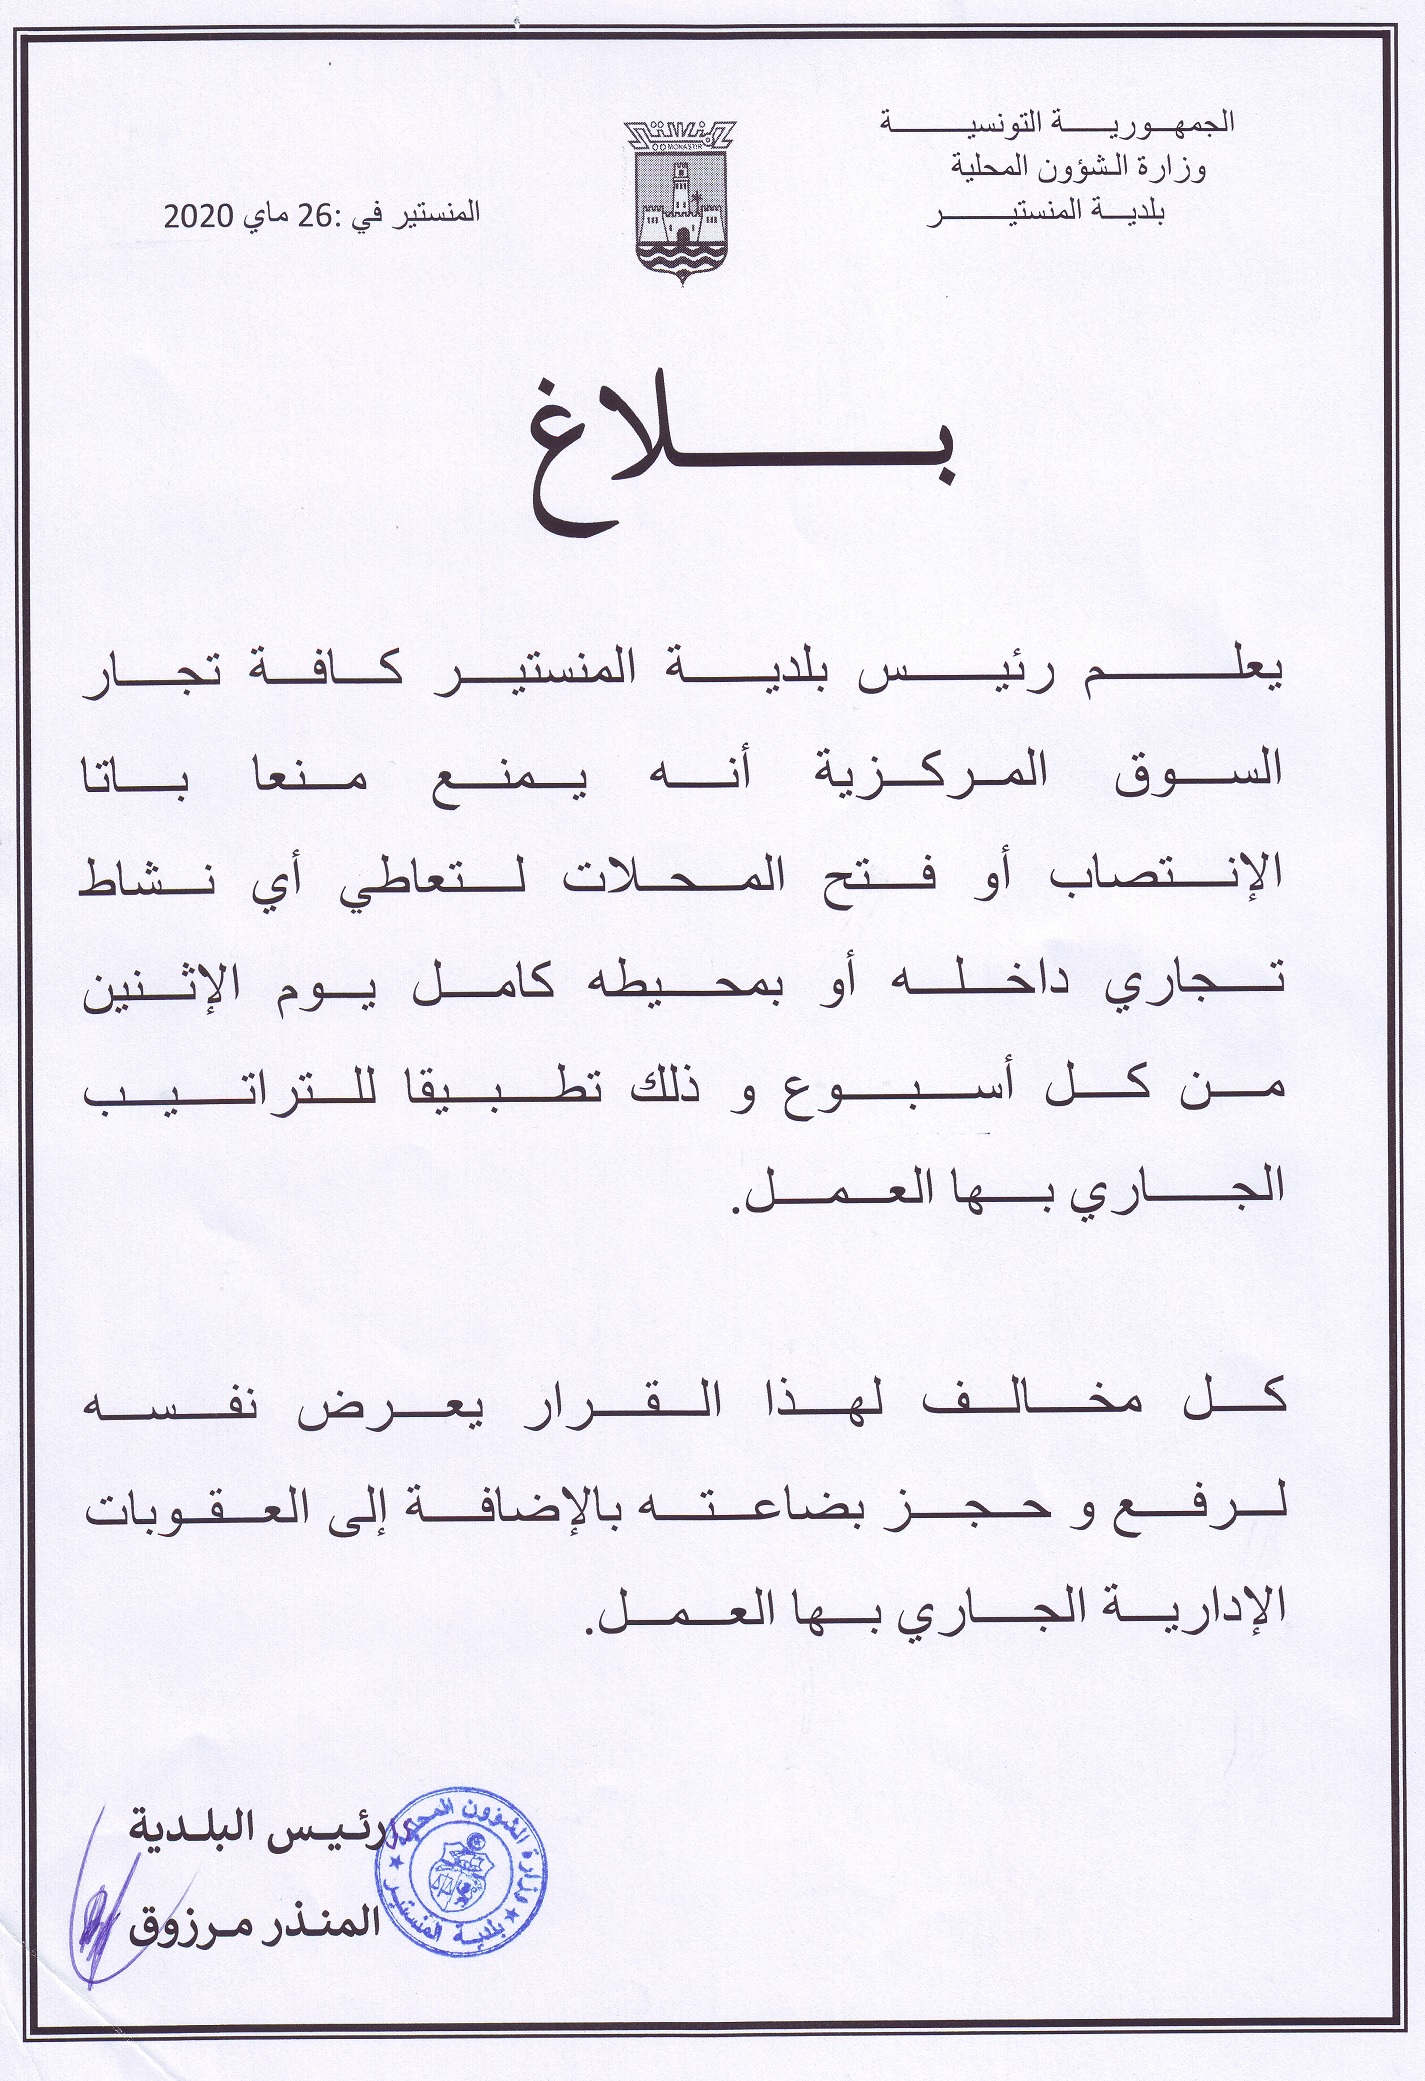 الجمهورية التونسية
وزارة الشؤون المحلية
بلدية المنستير
المنستير
MONASTIR
المنستير في :26 ماي 2020
بلاغ
يعلم رئيس بلدية المنستير كافة تجار
السوق المركزية أنه يمنع منعا باتا
الإنتصاب أو فتح المحلات لتعاطي أي نشاط
تجاري داخله أو بمحيطه كامل يوم الإثنين
من كل أسبوع و ذلك تطبيقا للتراتيب
الجاري بها العمل.
كل مخالف لهذا القرار يعرض نفسه
لرفع و حجز بضاعته بالإضافة إلى العقوبات
الإدارية الجاري بها العمل.
رئيس البلدية
المنذر مرزوق
وزارة الشؤون المحلية
بلدية المنستير